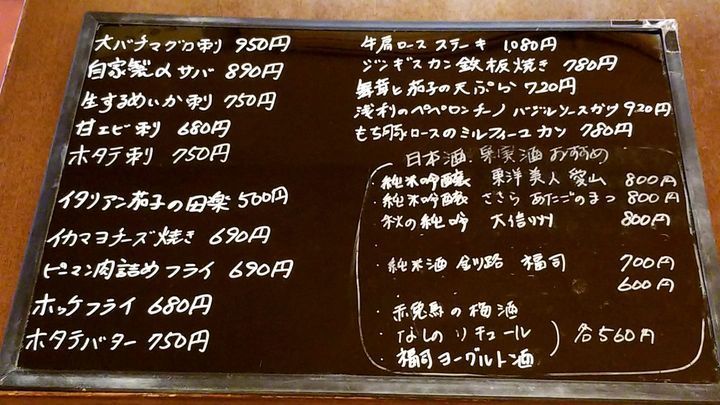 大バチマグロ刺 950円
自家製〆サバ 890円
生するめいか刺 750円
甘エビ刺 680円
ホタテ刺 750円
イタリアン茄子の田楽 500円
イカマヨチーズ焼き 690円
ピーマン肉詰めフライ 690円
ホッケフライ 680円
ホタテバター 750円
牛肩ロース ステーキ 1,080円
ジンギスカン 鉄板焼き 780円
舞茸と茄子の天ぷら 720円
浅利のペペロンチーノ バジルソースがケ 920円
もち豚ロースのミルフィーユカツ 780円
日本酒.果実酒おすすめ
・純米吟醸 東洋美人 愛山 800円
・純米吟醸 ささら あたごのまつ 800円
・秋の純吟 大信州 800円
・純米酒 釧路 福司 700円
600円
・赤兎馬の梅酒
・なしのリキュール 各560円
・福司ヨーグルト酒